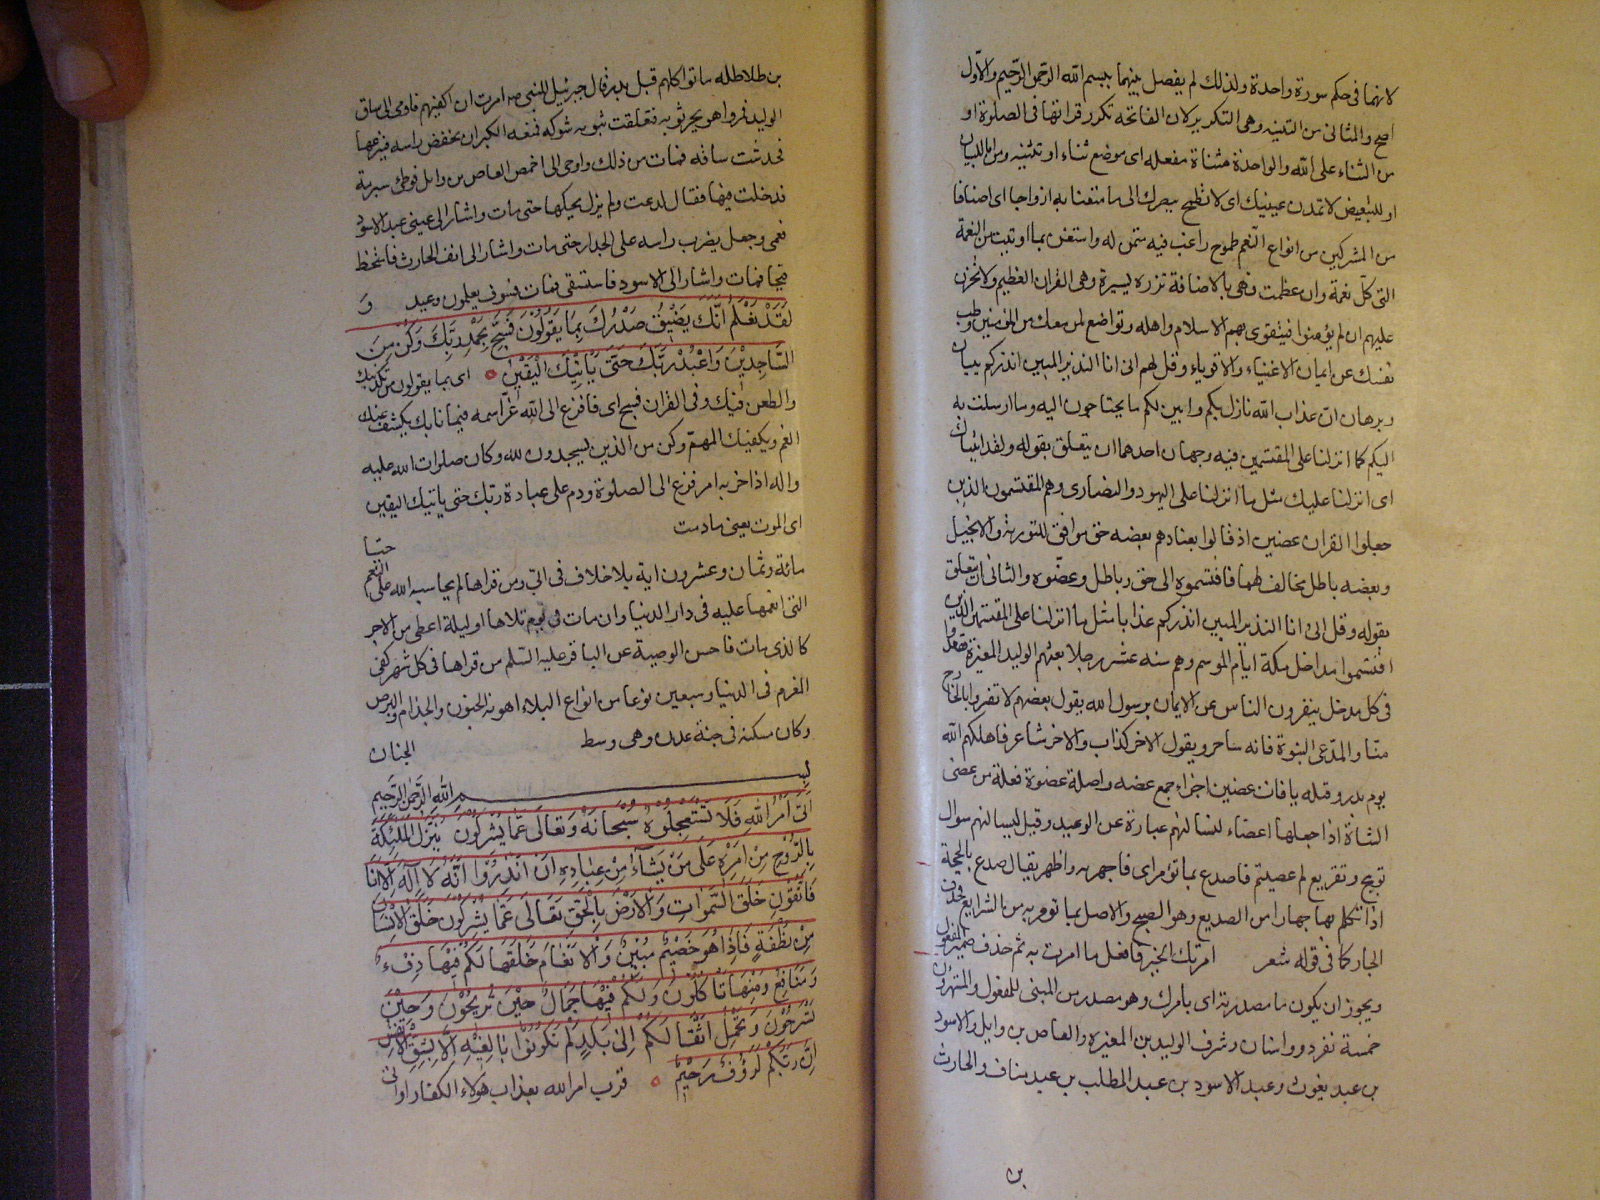 لانهما فى حكم سورة واحدة ولذلك لم يفصل بينهما ببسم الله الرحمن الرحيم والاول
اصح والمثانى من التثنيه وهى التكرير لان الفاتحة تكرر قراتها فى الصلوة او
من الثناء على الله والواحدة مثناة مفعله اى موضع ثناء او تثنيه ومن اما للبيان
او للتبعيض لا تمدن عينيك اى لا تطمح ببصرك الى ما متعنا به ازواجا اى اصنافا
من المشركين من انواع النعم طموح راغب فيه متمن له واستغن بما اوتيت من النعمة
التى كل نعمة وان عظمت فهى بالاضافة نزرة يسيرة وهى القران العظيم ولا تحزن
عليهم ان لم يؤمنوا فيتقوى بهم الاسلام واهله وتواضع لمن معك من المؤمنين وطب
نفسك عن ايمان الاغنياء والاقوياء وقل لهم انى انا النذير المبين انذركم ببيان
وبرهان ان عذاب الله نازل بكم وابين لكم ما يحتاجون اليه وما ارسلت به
اليكم كما انزلنا على المقتسمين فيه وجهان احدهما ان يتعلق بقوله ولقد اتيناك
اى انزلنا عليك مثل ما انزلنا على اليهود والنصارى وهم المقتسمون الذين
جعلوا القران عضين اذ قالوا بعنادهم بعضه حق موافق للتورية والانجيل
وبعضه باطل مخالف لهما فاقتسموه الى حق وباطل وعضوه والثانى ان يتعلق
بقوله وقل انى انا النذير المبين انذركم عذابا مثل ما انزلنا على المقتسمين الذين
اقتسموا مداخل مكة ايام الموسم وهم ستة عشر رجلا بعثهم الوليد المغيرة فقعدوا
فى كل مدخل ينفرون الناس عن الايمان برسول الله يقول بعضهم لا تغتروا بالخارج
منا والمدعى النبوة فانه ساحر ويقول الاخر كذاب والاخر شاعر فاهلكهم الله
يوم بدر وقبله بافات عضين اجزاء جمع عضه واصله عضوة فعلة من عضى
الشاة اذا جعلها اعضاء لنسالنهم عبارة عن الوعيد وقيل ليسالنهم سوال
توبيخ وتقريع لم عصيتم فاصدع بما تؤمر اى فاجهر به واظهر يقال صدع بالحجة
اذا تكلم بها جهارا من الصديع وهو الصبح والاصل بما تومر به من الشرايع فحذف
الجار كما فى قوله شعر امرتك الخير فافعل ما امرت به ثم حذف ضمير المفعول
ويجوز ان يكون ما مصدرية اى بامرك وهو مصدر من المبنى للمفعول والمستهزؤن
خمسة نفر ذوو اسنان وشرف الوليد بن المغيرة والعاص بن وايل والاسود
بن عبد يغوث وعبد الاسود بن عبد المطلب بن عبد مناف والحارث
بن
بن طلاطله ماتوا كلهم قبل بدر قال جبرئيل للنبى صه امرت ان اكفيهم فاومى الى ساق
الوليد فمر واهو يجر ثوبه فتعلقت ثبوبه شوكه فمنعه الكبر ان يخفض راسه فينزعها
فخدشت ساقه فمات من ذلك واومى الى اخمص العاص بن وائل فوطئ سبرقة
فدخلت فيها فقال لدغت ولم يزل يحكها حتى مات واشار الى عينى عبد الاسود
فعمى وجعل يضرب راسه على الجدار حتى مات واشار الى انف الحارث فامتخط
قيحا فمات واشار الى الاسود فاستسقى فمات فسوف يعلمون وعيد و
لقد نعلم انك يضيق صدرك بما يقولون فسبح بحمد ربك وكن من
الساجدين واعبد ربك حتى ياتيك اليقين اى بما يقولون من تكذيبك
والطعن فيك وفى القران فسبح اى فافزع الى الله عز اسمه فيما نابك يكشف عنك
الغم ويكفيك المهم وكن من الذين يسجدون لله وكان صلوات الله عليه
واله اذا حزبه امر فزع الى الصلوة ودم على عبادة ربك حتى ياتيك اليقين
اى الموت يعنى ما دمت حيا
مائة وثمان وعشرون اية بلا خلاف فى ابى ومن قراها لم يحاسبه الله على النعم
التى انعمها عليه فى دار الدنيا وان مات فى يوم تلاها او ليلة اعطى من الاجر
كالذى مات فاحسن الوصية عن الباقر عليه السلم من قراها فى كل شهر كفى
المغرم فى الدنيا وسبعين نوعا من انواع البلاء اهونه الجنون والجذام والبرص
وكان مسكنه فى جنة عدن وهى وسط الجنان
بسم الله الرحمن الرحيم
اتى امر الله فلا تستعجلوه سبحانه وتعالى عما يشركون ينزل الملئكة
بالروح من امره على من يشاء من عباده ان انذروا انه لا اله الا انا
فاتقون خلق السموات والارض بالحق تعالى عما يشركون خلق الانسان
من نطفة فاذا هو خصيم مبين والانعام خلقها لكم فيها دفء
ومنافع ومنها تاكلون ولكم فيها جمال حين تريحون وحين
تسرحون وتحمل اثقالكم الى بلد لم تكونوا بالغيه الا بشق الانفس
ان ربكم لرؤف رحيم قرب امر الله بعذاب هولاء الكفار اواتى